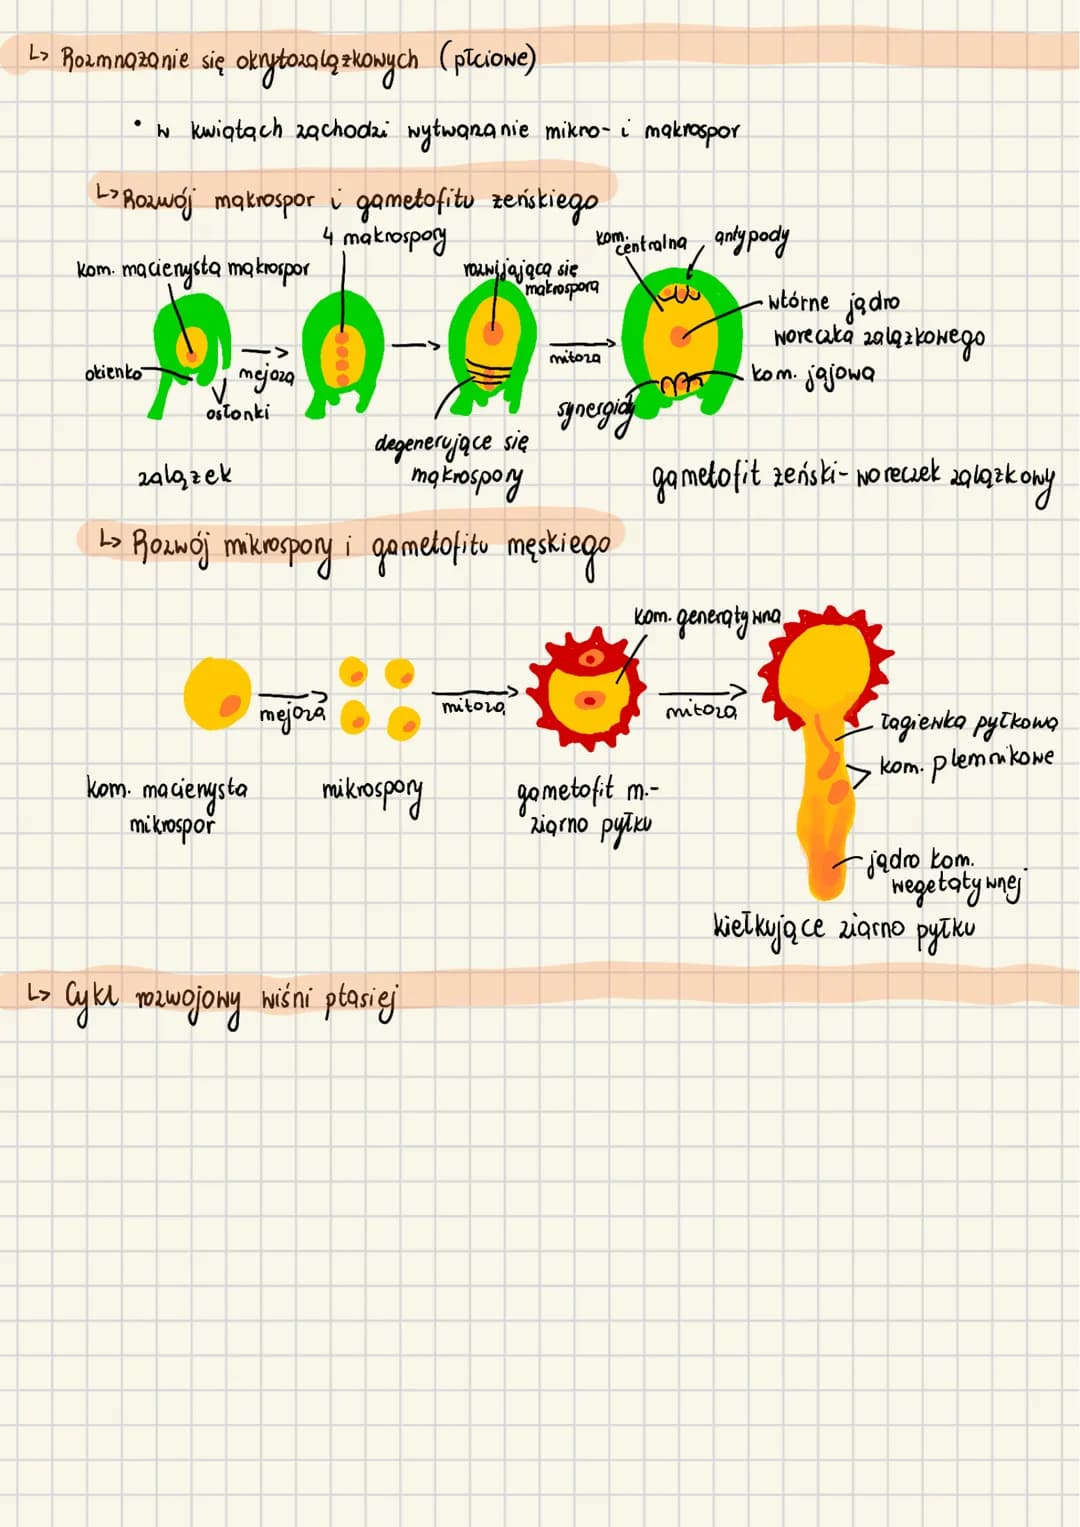 ↳ Rozmnażanie się okrytozalążkowych (płciowe)
• w kwiatach zachodzi wytwarzanie mikro- i makrospor
↳ Rozwój makrospor i gametofitu żeńskiego
4 makrospory
kom. macierzysta makrospor
rozwijająca się
makrospora
kom.
centralna
antypody
wtórne jądro
woreczka zalążkowego
okienko
mejoza
mitoza
kom. jajowa
osłonki
synergidy
degenerujące się
makrospory
zalążek
gametofit żeński - woreczek zalążkowy
↳ Rozwój mikrospory i gametofitu męskiego
kom. generatywna
mejoza
mitoza
mitoza
łagiewka pyłkowa
kom. plemnikowe
kom. macierzysta
mikrospor
mikrospory
gametofit m.-
ziarno pyłku
jądro kom.
wegetatywnej
kiełkujące ziarno pyłku
↳ Cykl rozwojowy wiśni ptasiej